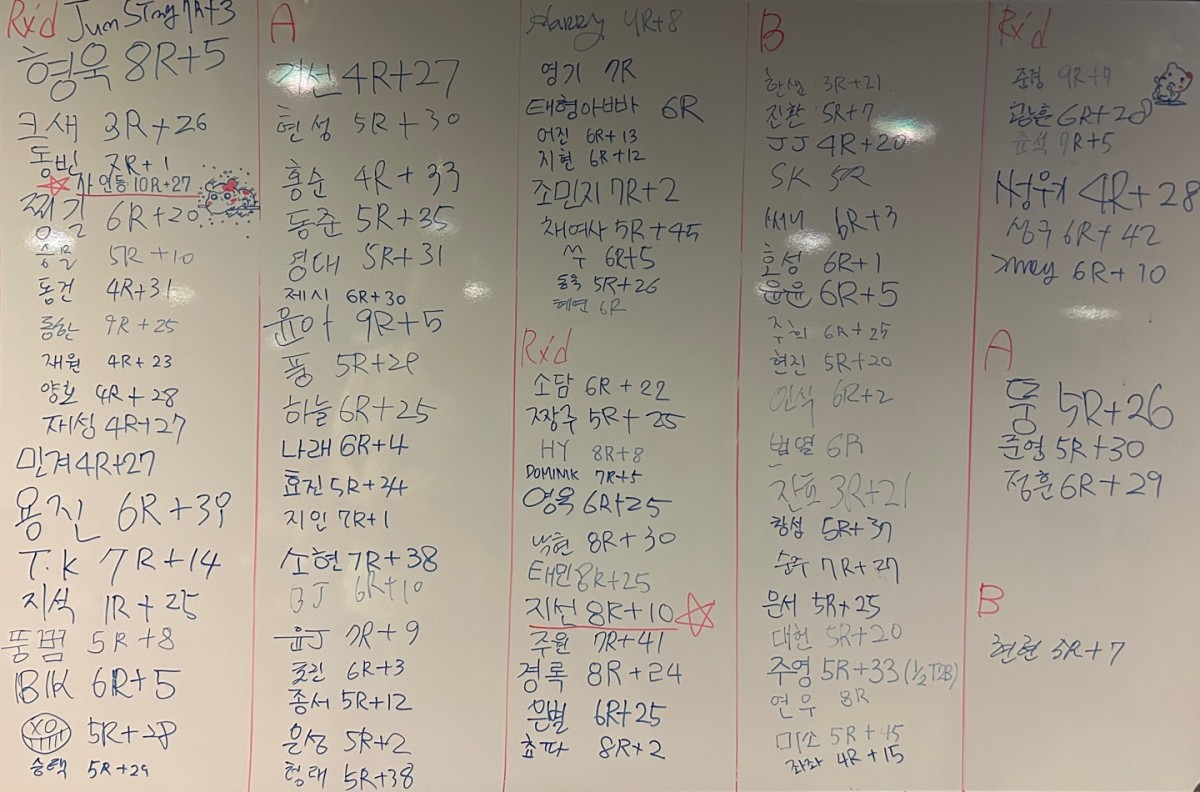 Rx'd Jum STng 7R+3
형욱 8R+5
크새 3R+26
동빈 7R+1
사 연동 10R+27
찡길 6R+20
5R+10
동건 4R+31
동한 9R+25
재원 4R+23
양호 4R+28
재성 4R+27
민겨 4R+27
용진 6R+39
T.K 7R+14
지석 1R+25
뚱범 5R+8
BIK 6R+5
XO 5R+28
승택 5R+29
A
기선 4R+27
현성 5R+30
홍순 4R+33
동준 5R+35
영대 5R+31
제시 6R+30
윤아 9R+5
풍 5R+29
하늘 6R+25
나래 6R+4
효진 5R+34
지인 7R+1
소현 7R+38
BJ 6R+10
윤J 7R+9
6R+3
종서 5R+12
은성 5R+2
형래 5R+38
Harry 4R+8
영기 7R
태형아빠바 6R
어진 6R+13
지현 6R+12
조민지 7R+2
채여사 5R+45
쑤 6R+5
동욱 5R+26
혜연 6R
Rx'd
소담 6R+22
짱구 5R+25
HY 8R+8
DOMINIK 7R+5
영욱 6R+25
낙현 8R+30
태민 8R+25
지선 8R+10
주원 7R+41
경록 8R+24
은별 6R+25
효파 8R+2
B
한샘 3R+21
진환 5R+7
JJ 4R+20
SK 5R
써니 6R+3
효성 6R+1
윤윤 6R+5
주희 6R+25
현진 5R+20
인식 6R+2
범열 6R
잔프 3R+21
창섭 5R+37
순주 7R+27
문서 5R+25
대헌 5R+20
주영 5R+33 (1/2 T2B)
연우 8R
미소 5R+45
좌좌 4R+15
Rx'd
준경 9R+7
광훈 6R+28
윤석 7R+5
서성우기 4R+28
성구 6R+42
6R+10
A
뚱 5R+26
준영 5R+30
정훈 6R+29
B
현현 5R+7